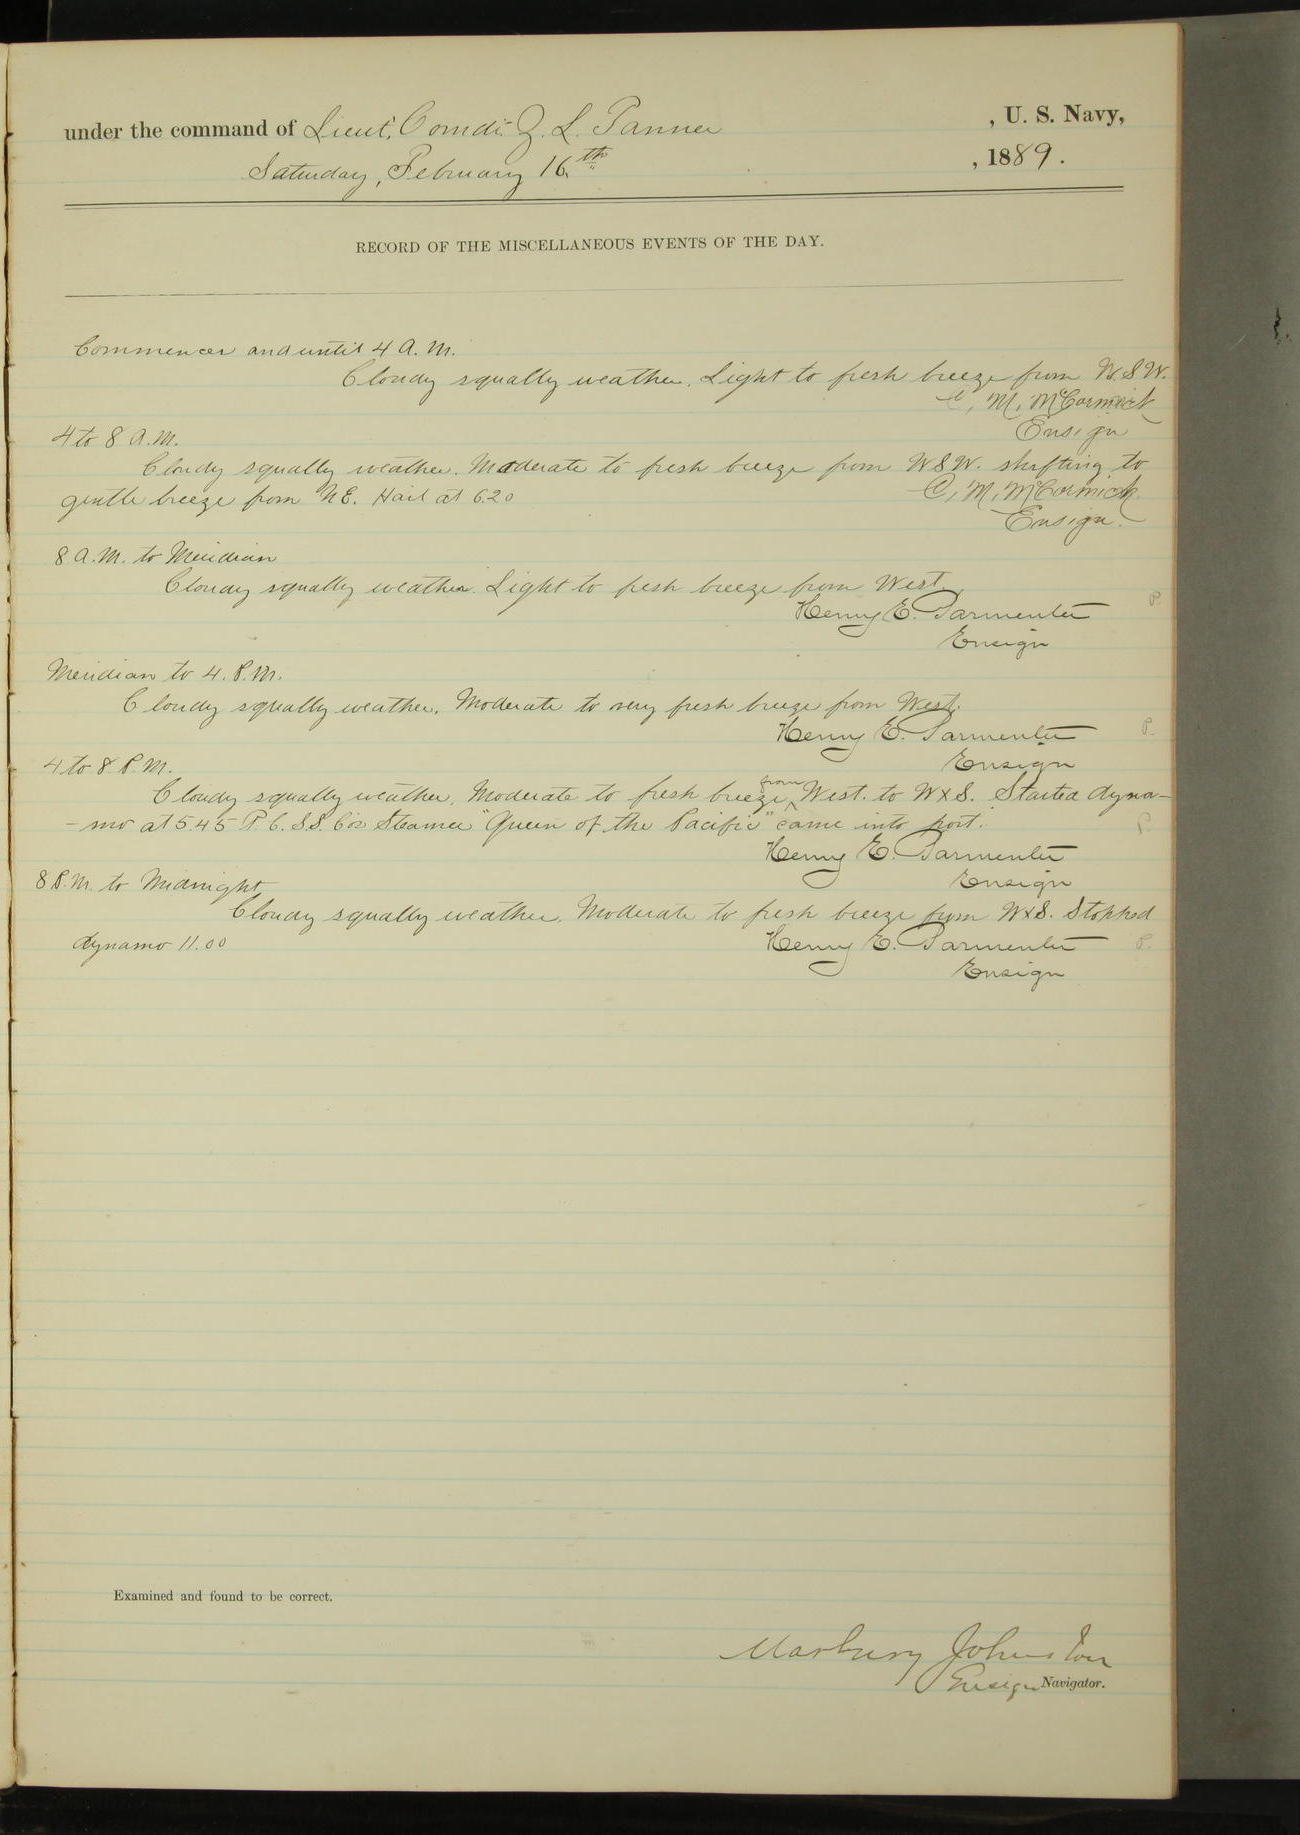 under the command of Lieut. Comdr. Z. L. Tanner , U. S. Navy,
Saturday, February 16th , 1889.
RECORD OF THE MISCELLANEOUS EVENTS OF THE DAY.
Commences and until 4 A.M.
Cloudy squally weather. Light to fresh breeze from W.S.W.
C, M, McCormick
Ensign
4 to 8 A.M.
Cloudy squally weather. Moderate to fresh breeze from WSW. shifting to
gentle breeze from NE. Hail at 6.20
C, M, McCormick.
Ensign.
8 A.M. to Meridian
Cloudy squally weather. Light to fresh breeze from West.
Henry E. Parmenter P.
Ensign
Meridian to 4. P.M.
Cloudy squally weather. Moderate to very fresh breeze from West.
Henry E. Parmenter P.
Ensign
4 to 8 P.M.
Cloudy squally weather, Moderate to fresh breeze from West. to WxS. Started dyna-
-mo at 5.45 P. C. S.S. Co's Steamer "Queen of the Pacific" came into port. P.
Henry E. Parmenter
Ensign
8 P.M. to Midnight
Cloudy squally weather. Moderate to fresh breeze from WxS. Stopped
dynamo 11.00
Henry E. Parmenter P.
Ensign
Examined and found to be correct.
Marbury Johnston
Ensign Navigator.